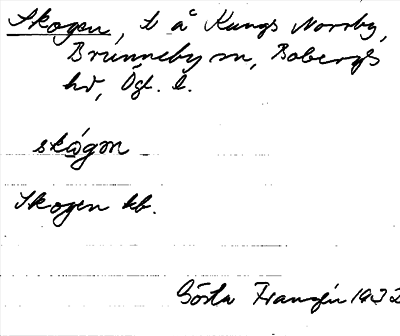 Skogen, t å Kungs Norrby,
Brunneby sn, Bobergs
hd, Ögl. l.
skógɷn
Skogen kb.
Gösta Franzén 1932